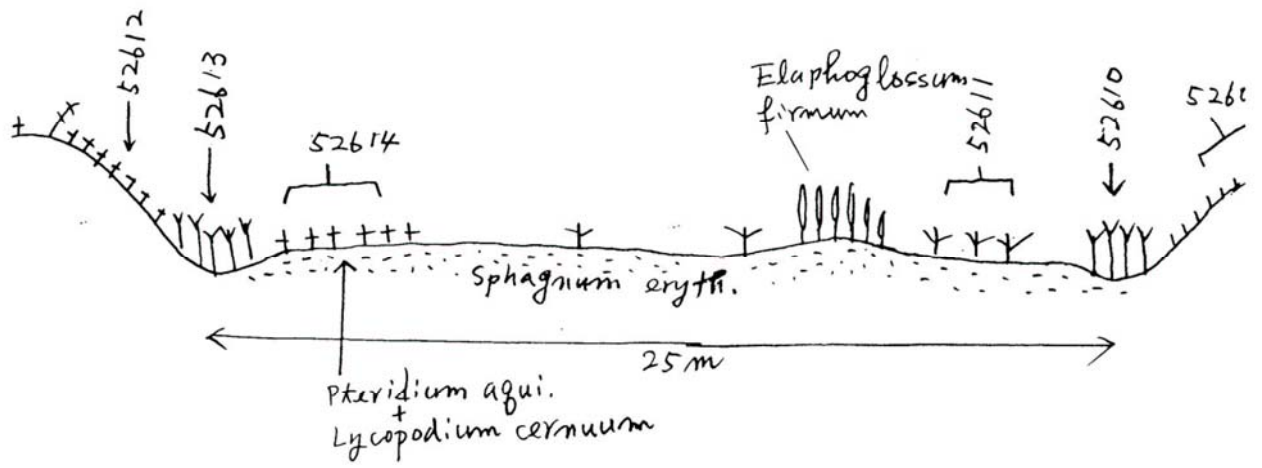 52612
52613
52614
Elaphoglossum
firmum
52611
52610
Sphagnum eryth.
25m
Pteridium aqui.
+
Lycopodium cernuum